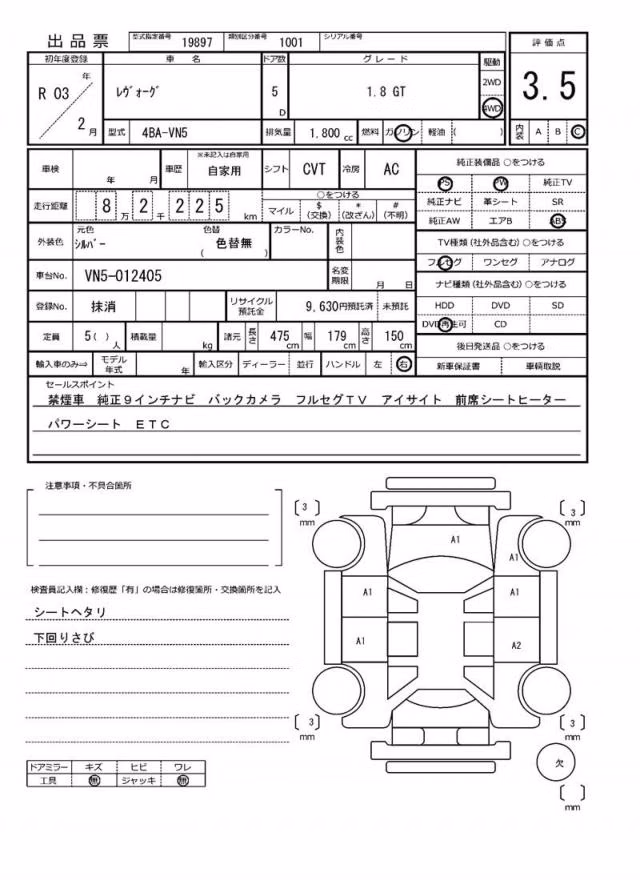 出品票 型式指定番号 19897 類別区分番号 1001 シリアル番号
評価点
3.5
内装 A B C
初年度登録 車名 ドア数 グレード 駆動
R 03 年 2 月 レヴォーグ 5 D 1.8 GT 2WD 4WD
型式 4BA-VN5 排気量 1.800 cc 燃料 ガソリン 軽油 ( )
車検 年 月 車歴 ※未記入は自家用 自家用 シフト CVT 冷房 AC
走行距離 8 万 2 千 2 2 5 km ○をつける
マイル $(交換) *(改ざん) #(不明)
外装色 元色 シルバー 色替 ( 色替無 ) カラーNo. 内装色
車台No. VN5-012405 名変期限 月 日
登録No. 抹消 リサイクル預託金 9,630円預託済 未預託
定員 5( )人 積載量 kg 諸元 長さ 475 cm 幅 179 cm 高さ 150 cm
輸入車のみ⇒ モデル年式 年 輸入区分 ディーラー 並行 ハンドル 左 右
純正装備品 ○をつける
PS PW 純正TV
純正ナビ 革シート SR
純正AW エアB ABS
TV種類(社外品含む)○をつける
フルセグ ワンセグ アナログ
ナビ種類(社外品含む)○をつける
HDD DVD SD
DVD再生可 CD
後日発送品 ○をつける
新車保証書 車輌取説
セールスポイント
禁煙車 純正9インチナビ バックカメラ フルセグTV アイサイト 前席シートヒーター
パワーシート ETC
注意事項・不具合箇所
検査員記入欄:修復歴「有」の場合は修復箇所・交換箇所を記入
シートヘタリ
下回りさび
ドアミラー キズ ヒビ ワレ
工具 無 ジャッキ 無
[ 3 ] mm
[ 3 ] mm
A1
A1
A1 A1
A1 A2
[ 3 ] mm
[ 3 ] mm
欠
[ ] mm